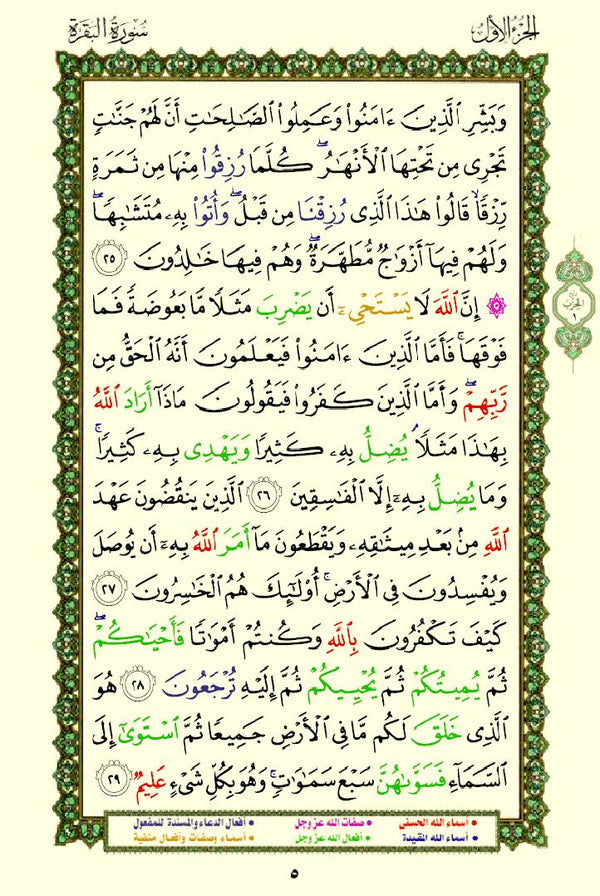 الجزء الأول
سورة البقرة
وَبَشِّرِ ٱلَّذِينَ ءَامَنُوا۟ وَعَمِلُوا۟ ٱلصَّـٰلِحَـٰتِ أَنَّ لَهُمْ جَنَّـٰتٍ
تَجْرِى مِن تَحْتِهَا ٱلْأَنْهَـٰرُ ۖ كُلَّمَا رُزِقُوا۟ مِنْهَا مِن ثَمَرَةٍ
رِّزْقًا ۙ قَالُوا۟ هَـٰذَا ٱلَّذِى رُزِقْنَا مِن قَبْلُ ۖ وَأُتُوا۟ بِهِۦ مُتَشَـٰبِهًا ۖ
وَلَهُمْ فِيهَآ أَزْوَٰجٌ مُّطَهَّرَةٌ ۖ وَهُمْ فِيهَا خَـٰلِدُونَ ٢٥
۞ إِنَّ ٱللَّهَ لَا يَسْتَحْىِۦٓ أَن يَضْرِبَ مَثَلًا مَّا بَعُوضَةً فَمَا
فَوْقَهَا ۚ فَأَمَّا ٱلَّذِينَ ءَامَنُوا۟ فَيَعْلَمُونَ أَنَّهُ ٱلْحَقُّ مِن
رَّبِّهِمْ ۖ وَأَمَّا ٱلَّذِينَ كَفَرُوا۟ فَيَقُولُونَ مَاذَآ أَرَادَ ٱللَّهُ
بِهَـٰذَا مَثَلًا ۘ يُضِلُّ بِهِۦ كَثِيرًا وَيَهْدِى بِهِۦ كَثِيرًا ۚ
وَمَا يُضِلُّ بِهِۦٓ إِلَّا ٱلْفَـٰسِقِينَ ٢٦ ٱلَّذِينَ يَنقُضُونَ عَهْدَ
ٱللَّهِ مِنۢ بَعْدِ مِيثَـٰقِهِۦ وَيَقْطَعُونَ مَآ أَمَرَ ٱللَّهُ بِهِۦٓ أَن يُوصَلَ
وَيُفْسِدُونَ فِى ٱلْأَرْضِ ۚ أُو۟لَـٰٓئِكَ هُمُ ٱلْخَـٰسِرُونَ ٢٧
كَيْفَ تَكْفُرُونَ بِٱللَّهِ وَكُنتُمْ أَمْوَٰتًا فَأَحْيَـٰكُمْ ۖ
ثُمَّ يُمِيتُكُمْ ثُمَّ يُحْيِيكُمْ ثُمَّ إِلَيْهِ تُرْجَعُونَ ٢٨ هُوَ
ٱلَّذِى خَلَقَ لَكُم مَّا فِى ٱلْأَرْضِ جَمِيعًا ثُمَّ ٱسْتَوَىٰٓ إِلَى
ٱلسَّمَآءِ فَسَوَّىٰهُنَّ سَبْعَ سَمَـٰوَٰتٍ ۚ وَهُوَ بِكُلِّ شَىْءٍ عَلِيمٌ ٢٩
• أسماء الله الحسنى • صفات الله عز وجل • أفعال الدعاء والمسندة للمفعول
• أسماء الله المقيدة • أفعال الله عز وجل • أسماء وصفات وأفعال منفية
٥